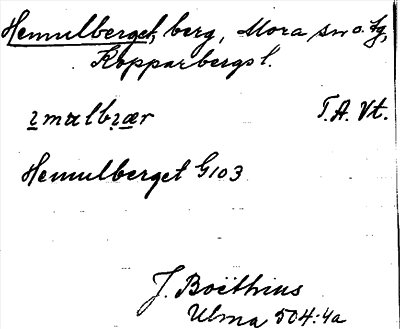 Hemulberget, berg, Mora sn o. tg,
Kopparbergs l.
ımalbıær T.A. Vt.
Hemulberget G103
J. Boëthius
Ulma 504:4a